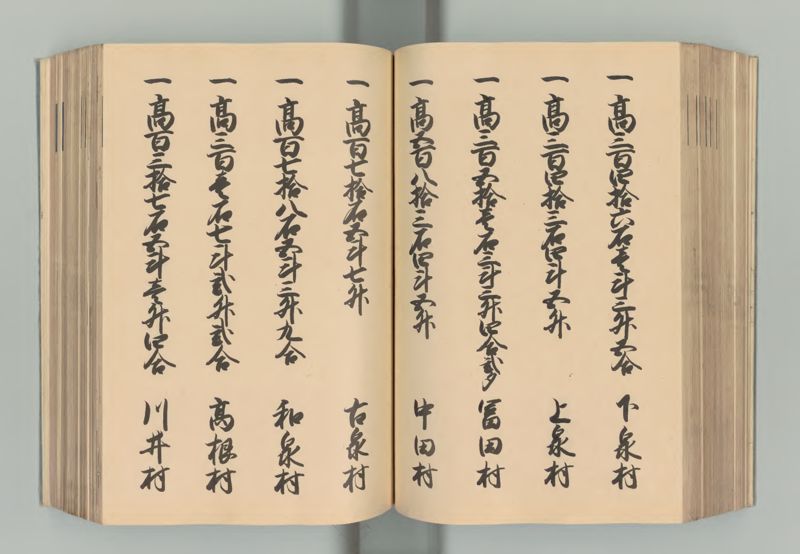 一高三百四拾六石壱斗三升五合 下泉村
一高三百四拾三石四斗五升 上泉村
一高三百五拾壱石三斗三升四合弐夕 冨田村
一高五百八拾三石四斗五升 中田村
一高百七拾石五斗七升 古泉村
一高百七拾八石五斗三升九合 和泉村
一高三百壱石七斗弐升弐合 高根村
一高百三拾七石五斗壱升四合 川井村